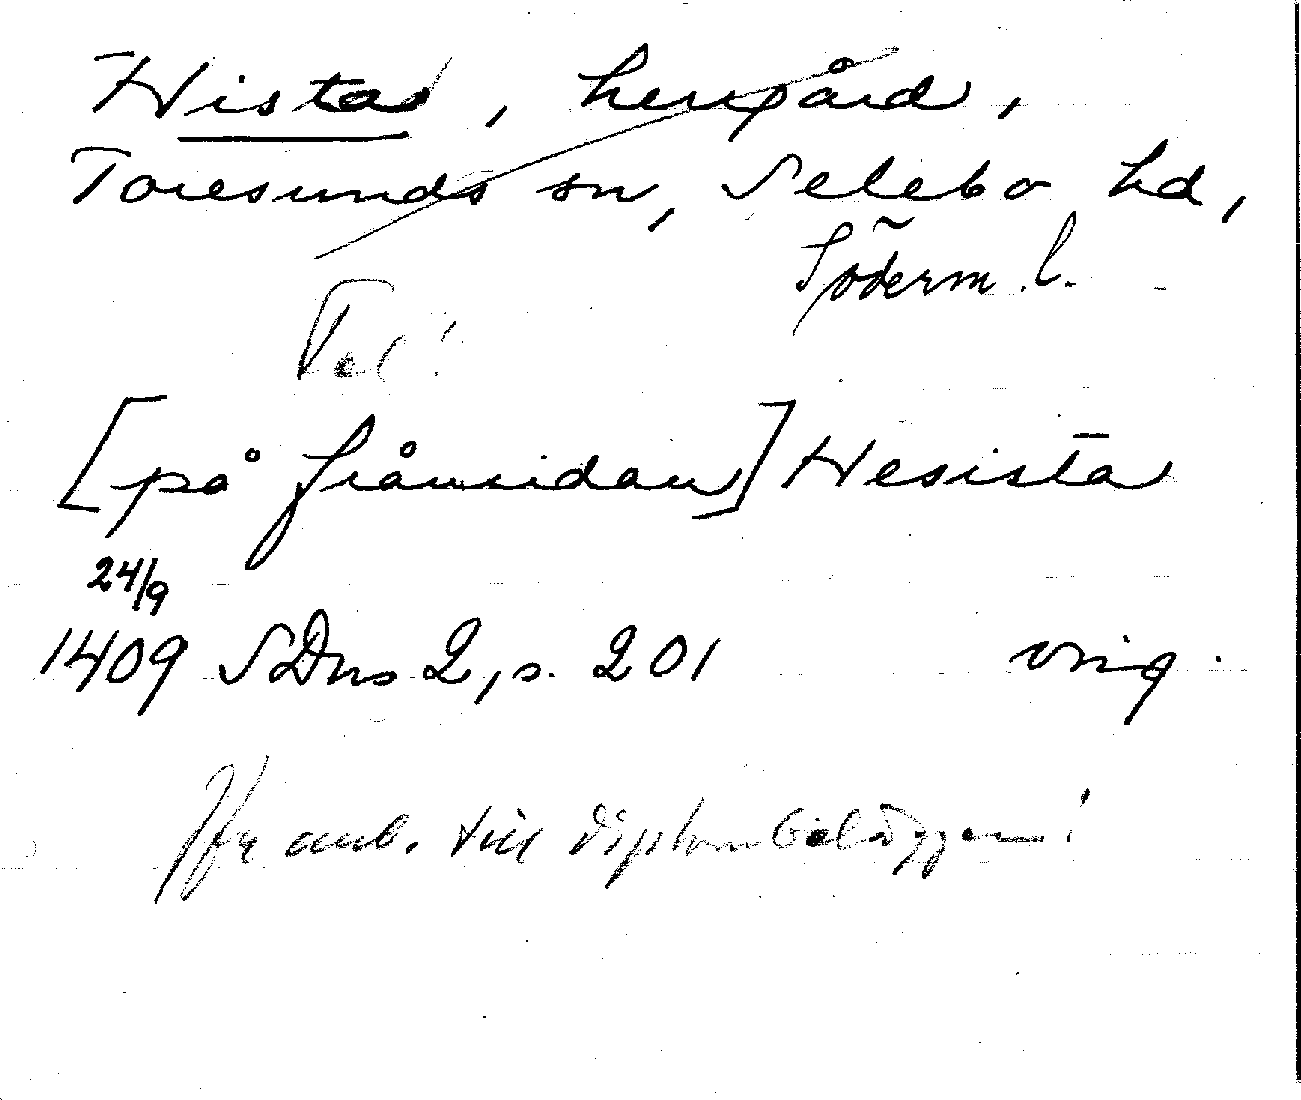 Hista, herrgård,
Toresunds sn, Selebo hd,
Söderm. l.
Fel!
[på frånsidan] Hesista
24/9
1409 SDns 2, s. 201 orig.
Jfr anb. till diplombeläggen!